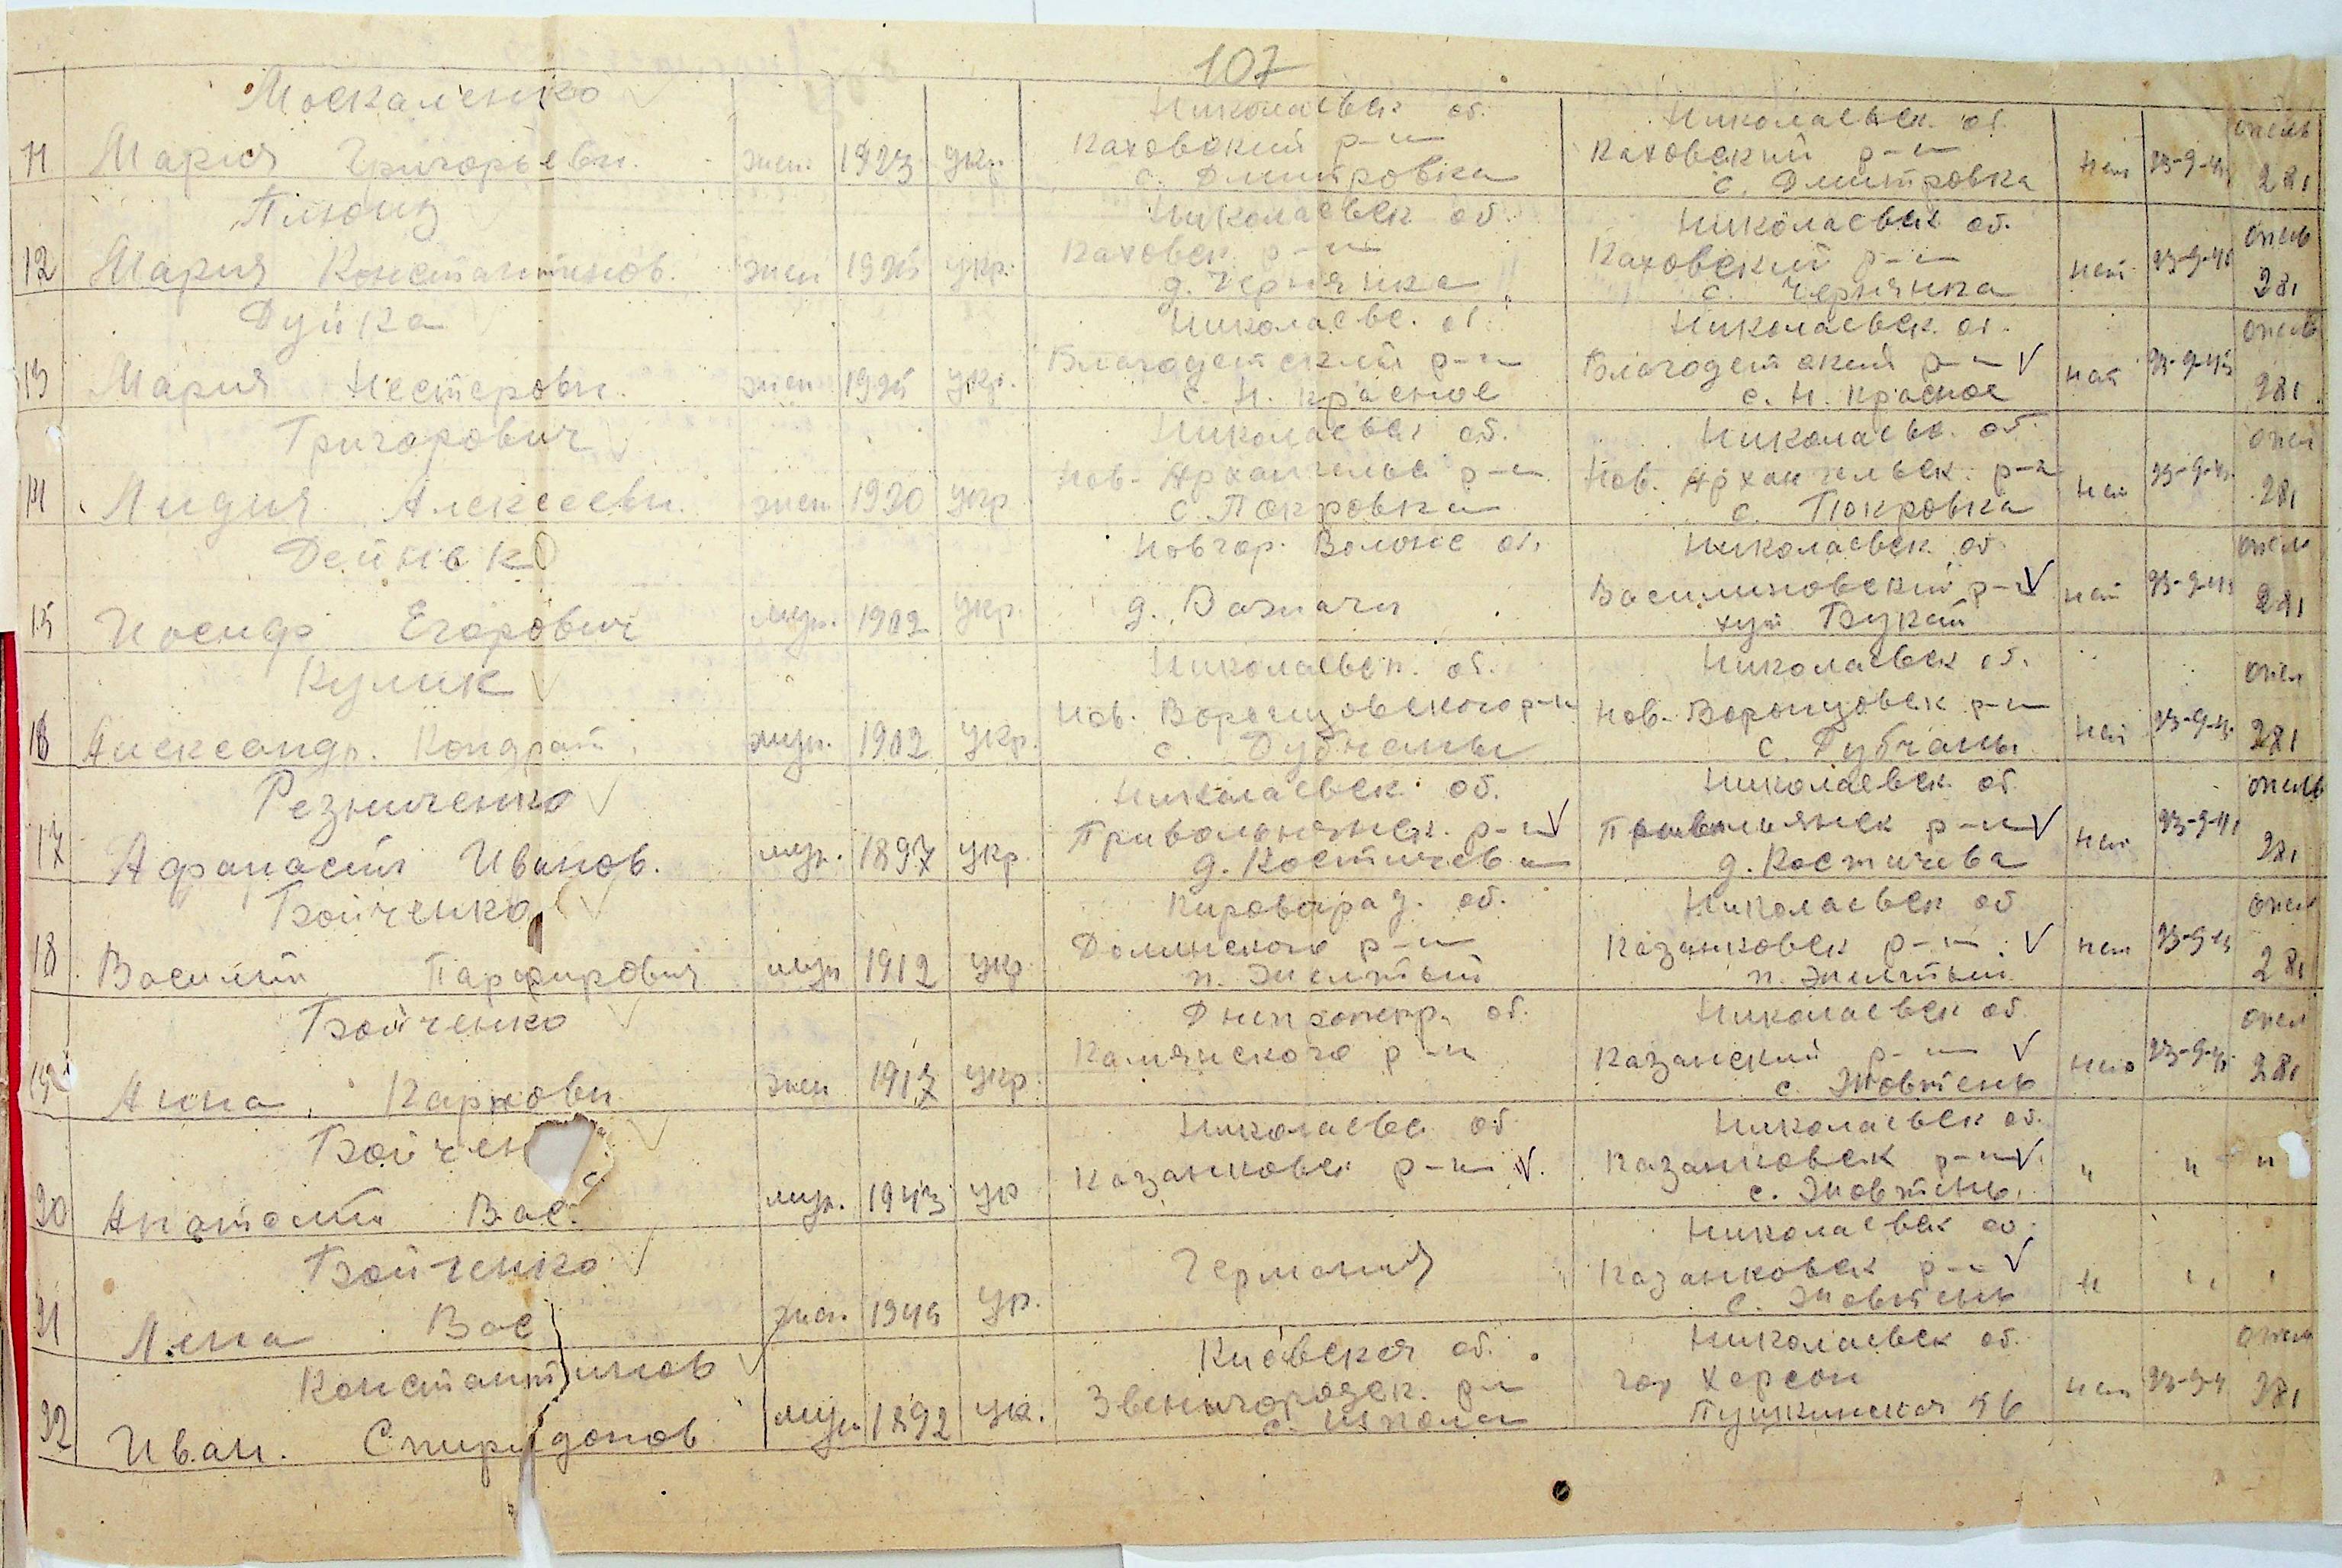 107
Москаленко
Николаевск об. Николаевск. об. опель
11 Мария Григорьевн. жен. 1923 укр. Каховский р-н с. Дмитровка Каховский р-н с. Дмитровка нет 23-9-45 281
Плющ
Николаевск об. Николаевск об. опель
12 Мария Константинов. жен 1925 укр. Каховск р-н д. Чернянка Каховский р-н с. Чернянка нет 23-9-45 281
Дуйка
Николаевс. об. Николаевск. об. опель
13 Мария Нестеровн. жен 1925 укр. Благодетский р-н с. Н. Красное Благодетский р-н с. Н. Красное нет 23-9-45 281
Григорович
Николаевск об. Николаевс. об. опел
14 Лидия Алексеевн. жен 1920 укр Нов-Архангельс р-н с. Покровка Нов. Архангельск. р-н с. Покровка нет 23-9-45 281
Дейнеко
Новгор. Волынс об. Николаевск об. опель
15 Иосиф Егорович муж. 1902 укр. д. Василиновский р-н хут Букат нет 23-9-45 281
Кулик
Николаевск. об. Николаевск об. опел
16 Александр. Кондрат. муж. 1902 укр. Нов. Воронцовского р-н с. Дубчаны Нов-Воронцовск р-н с. Дубчаны нет 23-9-45 281
Резниченко
Николаевск об. Николаевск об опель
17 Афанасий Иванов. муж. 1897 укр. Привольнянск. р-н д. Костичева Привольнянск р-н д. Костичева нет 23-9-45 281
Бойченко
Кировоград. об. Николаевск об опел
18 Василий Парфирович муж 1912 укр Долинского р-н п. Желтый Казанковск р-н п. Желтый нет 23-9-45 281
Бойченко
Днепропетр. об. Николаевск об опел
19 Анна Карповн жен 1917 укр. Камянского р-н Казанский р-н с. Жовтень нет 23-9-45 281
Бойчен
Николаевс об Николаевск об.
20 Анатолий Вас. муж. 1943 ук Казанковск р-н Казанковск р-н с. Жовтень " " "
Бойченко
Николаевск об.
21 Лена Вас жен. 1945 ук. Германия Казанковск р-н с. Жовтень
Константинов
Киевская об. Николаевск об. опель
22 Иван. Спиридонов муж 1892 ук. Звенигородск. р-н с. Шпола гор Херсон Пушкинская 56 нет 23-9-4 281